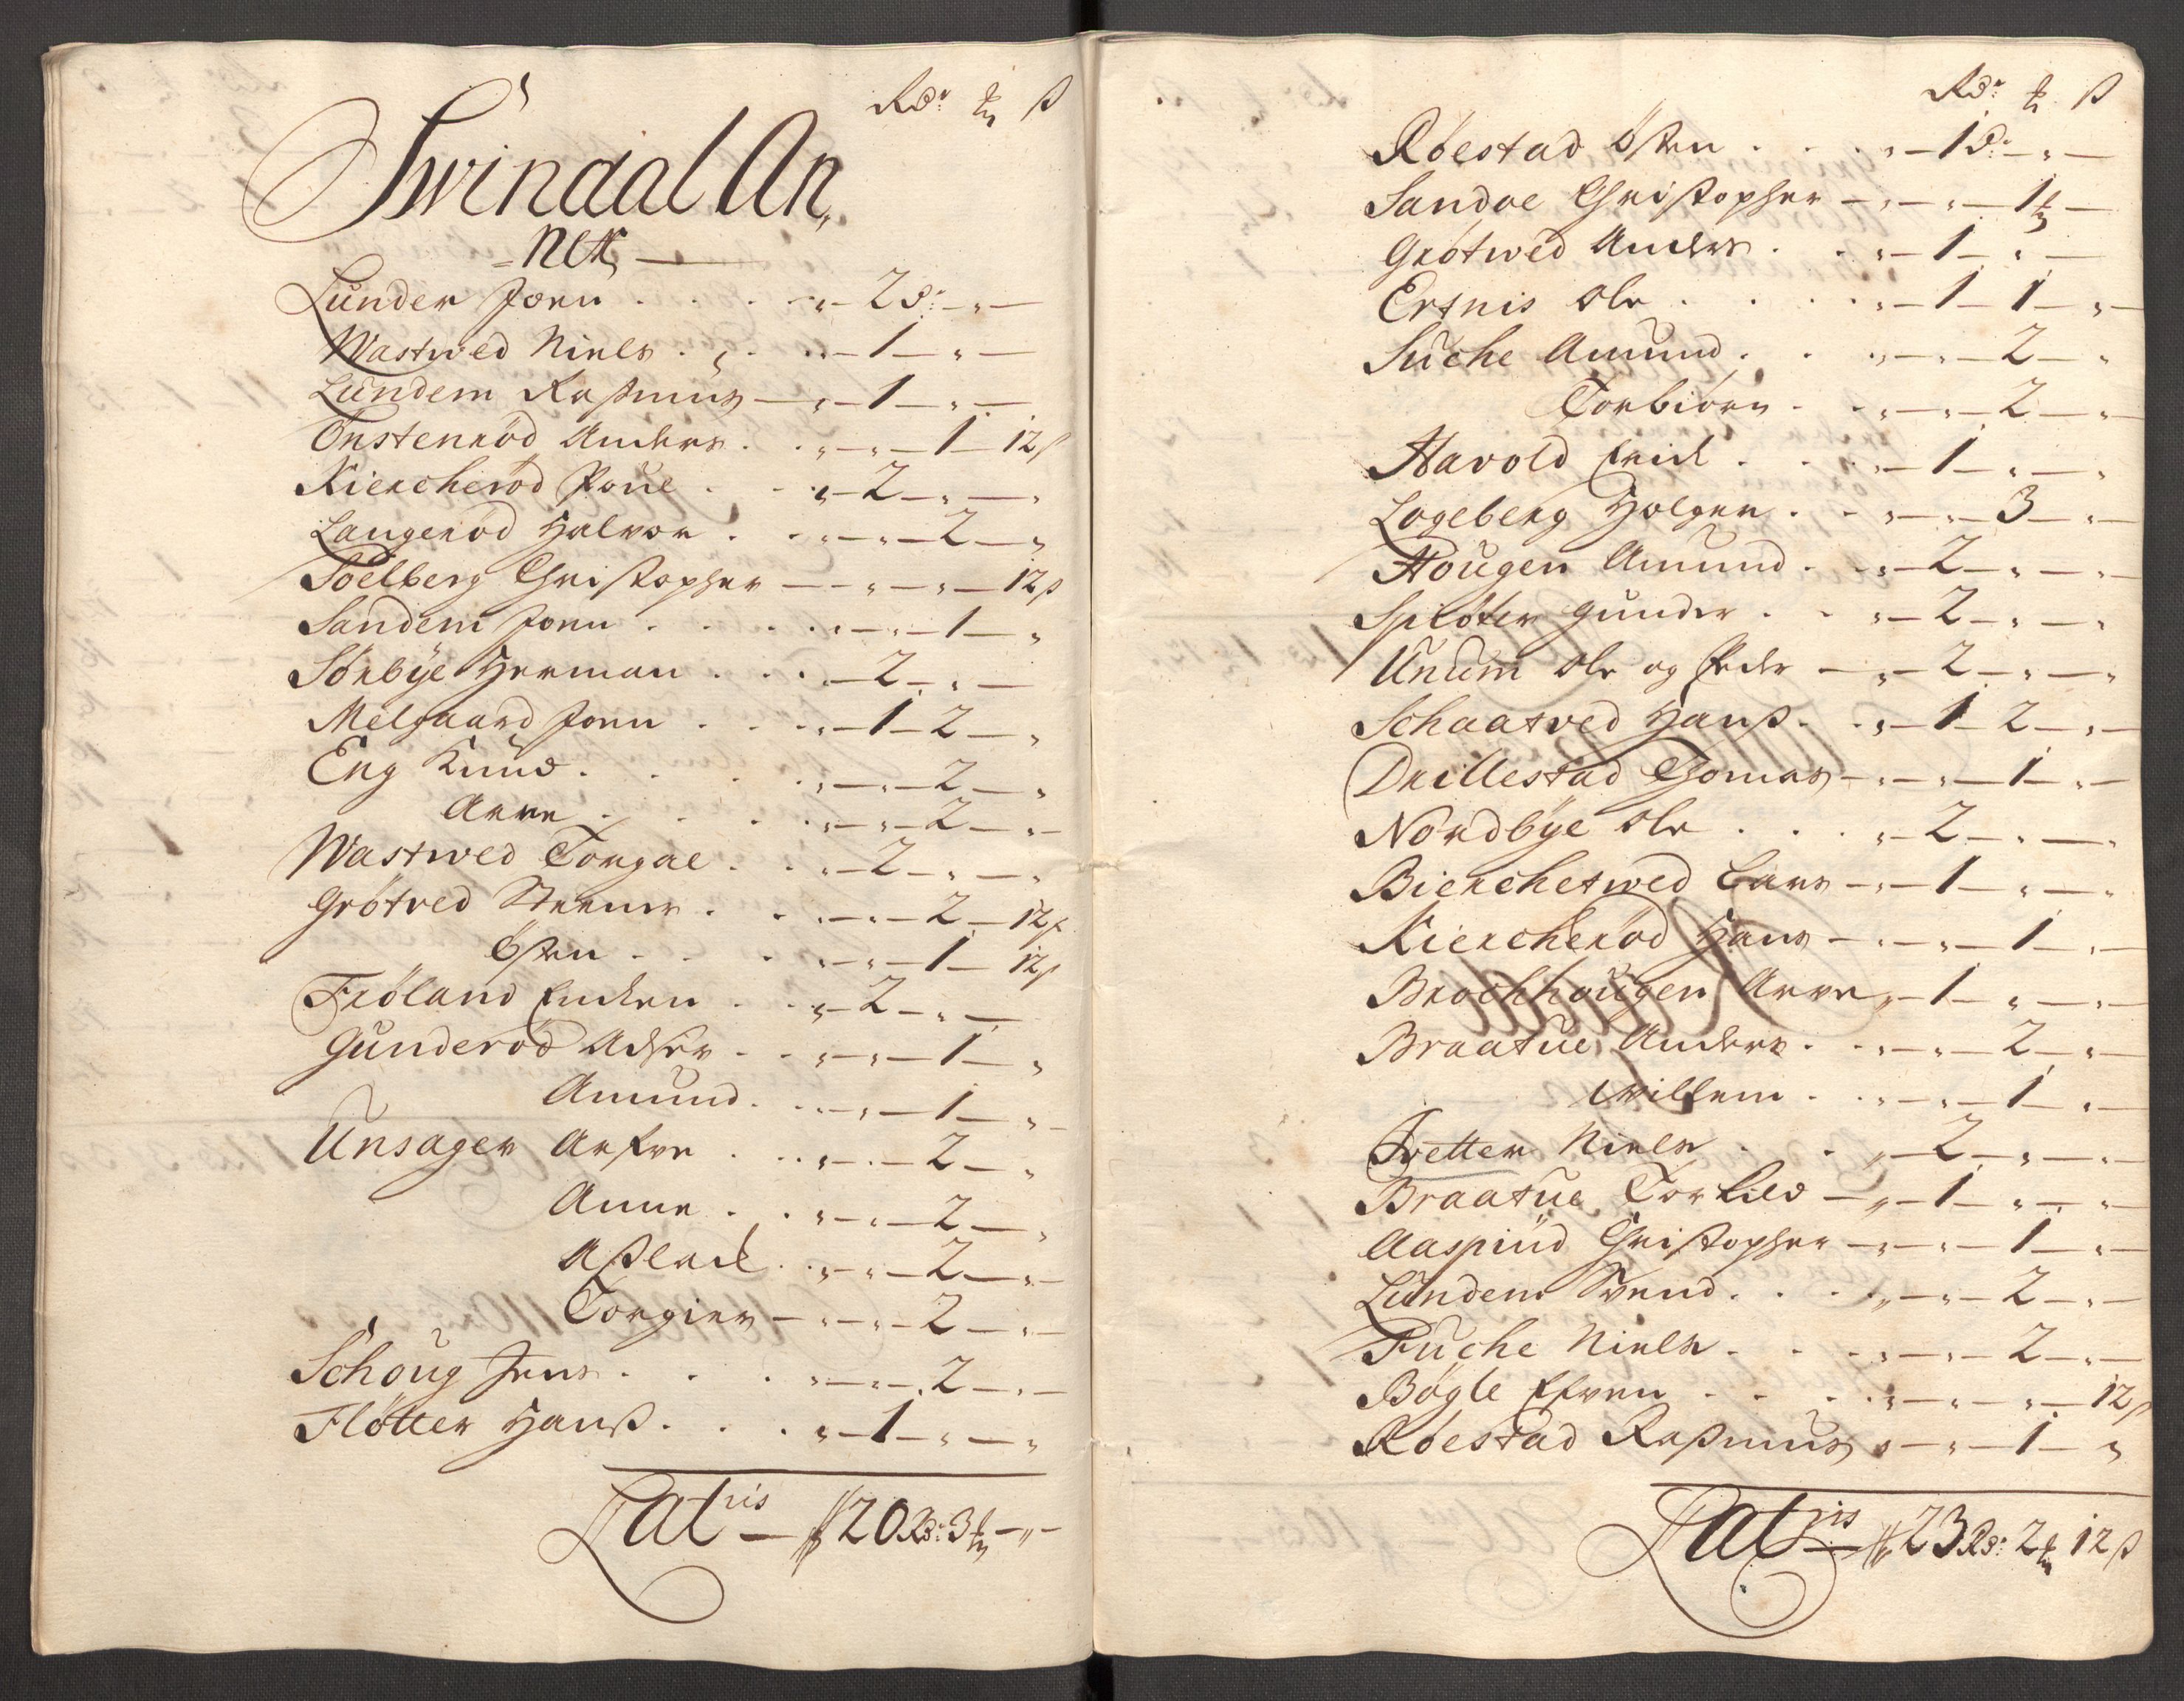 Rdr ß
Swindal An,
Nex
Lunder Joen . . . „ 2 d: „
Wastwed Niels . . . „ 1 „
Lundem Raßmus „ 1 „
Onstenröd Anders . „ „ 1 12 ß
Kiercheröd Poue . „ 2 „ „
Langeröd Halvor . „ „ 2 „
Soelberg Christopher „ „ 12 ß
Sandem Joen . . . „ „ 1 „
Sörbÿe Herman . . . 2 „
Melgaard Joen . . „ 1 2 „
Eng Knud . . . „ „ 2 „
Arve . . . „ „ 2 „
Wastwed Torgal . . „ 2 „ „
Grötved . . „ „ 2 12 ß
Østen . . . „ „ 1 12 ß
Fröland . . „ 2 „
Gunderöd . . „ „ 1 „
Amund . . „ „ 1 „
Unsager Arfve . . „ „ 2 „
Anne . . „ „ 2 „
Aßlack . . „ „ 2 „
Torgier „ „ 2 „
Schoug Jens . . . „ „ 2 „
Flötter Hanß . . . „ 1 „ „
Lateris 20 Rdr: 3 „
Rdr ß
Röestad Østen . . . „ 1 d: „
Sandoe Christopher „ „ 1
Grötwed Anders . . „ 1 „
Ertnis Ole . . . „ 1 1 „
Suche Amund . . „ „ 2 „
Torbiörn . . „ „ 2 „
Harold Erich . . . „ 1 „ „
Logeberg Holger . . „ „ 3 „
Hougen Amund . . „ 2 „ „
Splöter Gunder . . „ 2 „ „
Unum Ole og Peder „ 2 „ „
Schaatved Hanß . . „ 1 2 „
Drillestad Thomas „ „ 1 „
Nordbÿe Ole . . . „ 2 „ „
Bierchetwed Lars „ 1 „ „
Kiercheröd Hans „ „ 1 „
Brochhougen Arve „ 1 „ „
Braatue Anders . . „ „ 2 „
Willem . . „ „ 1 „
Tvetter Niels . . „ 2 „ „
Braatue Torkild „ 1 „ „
Aaspund Christopher „ „ 1 „
Lundem Svend . . . „ „ 2 „
Fuche Niels . . . „ „ 2 „
Bögle . . . „ „ „ 12 ß
Röestad Raßmus „ „ 1 „
Lateris 23 Rdr: 2 12 ß